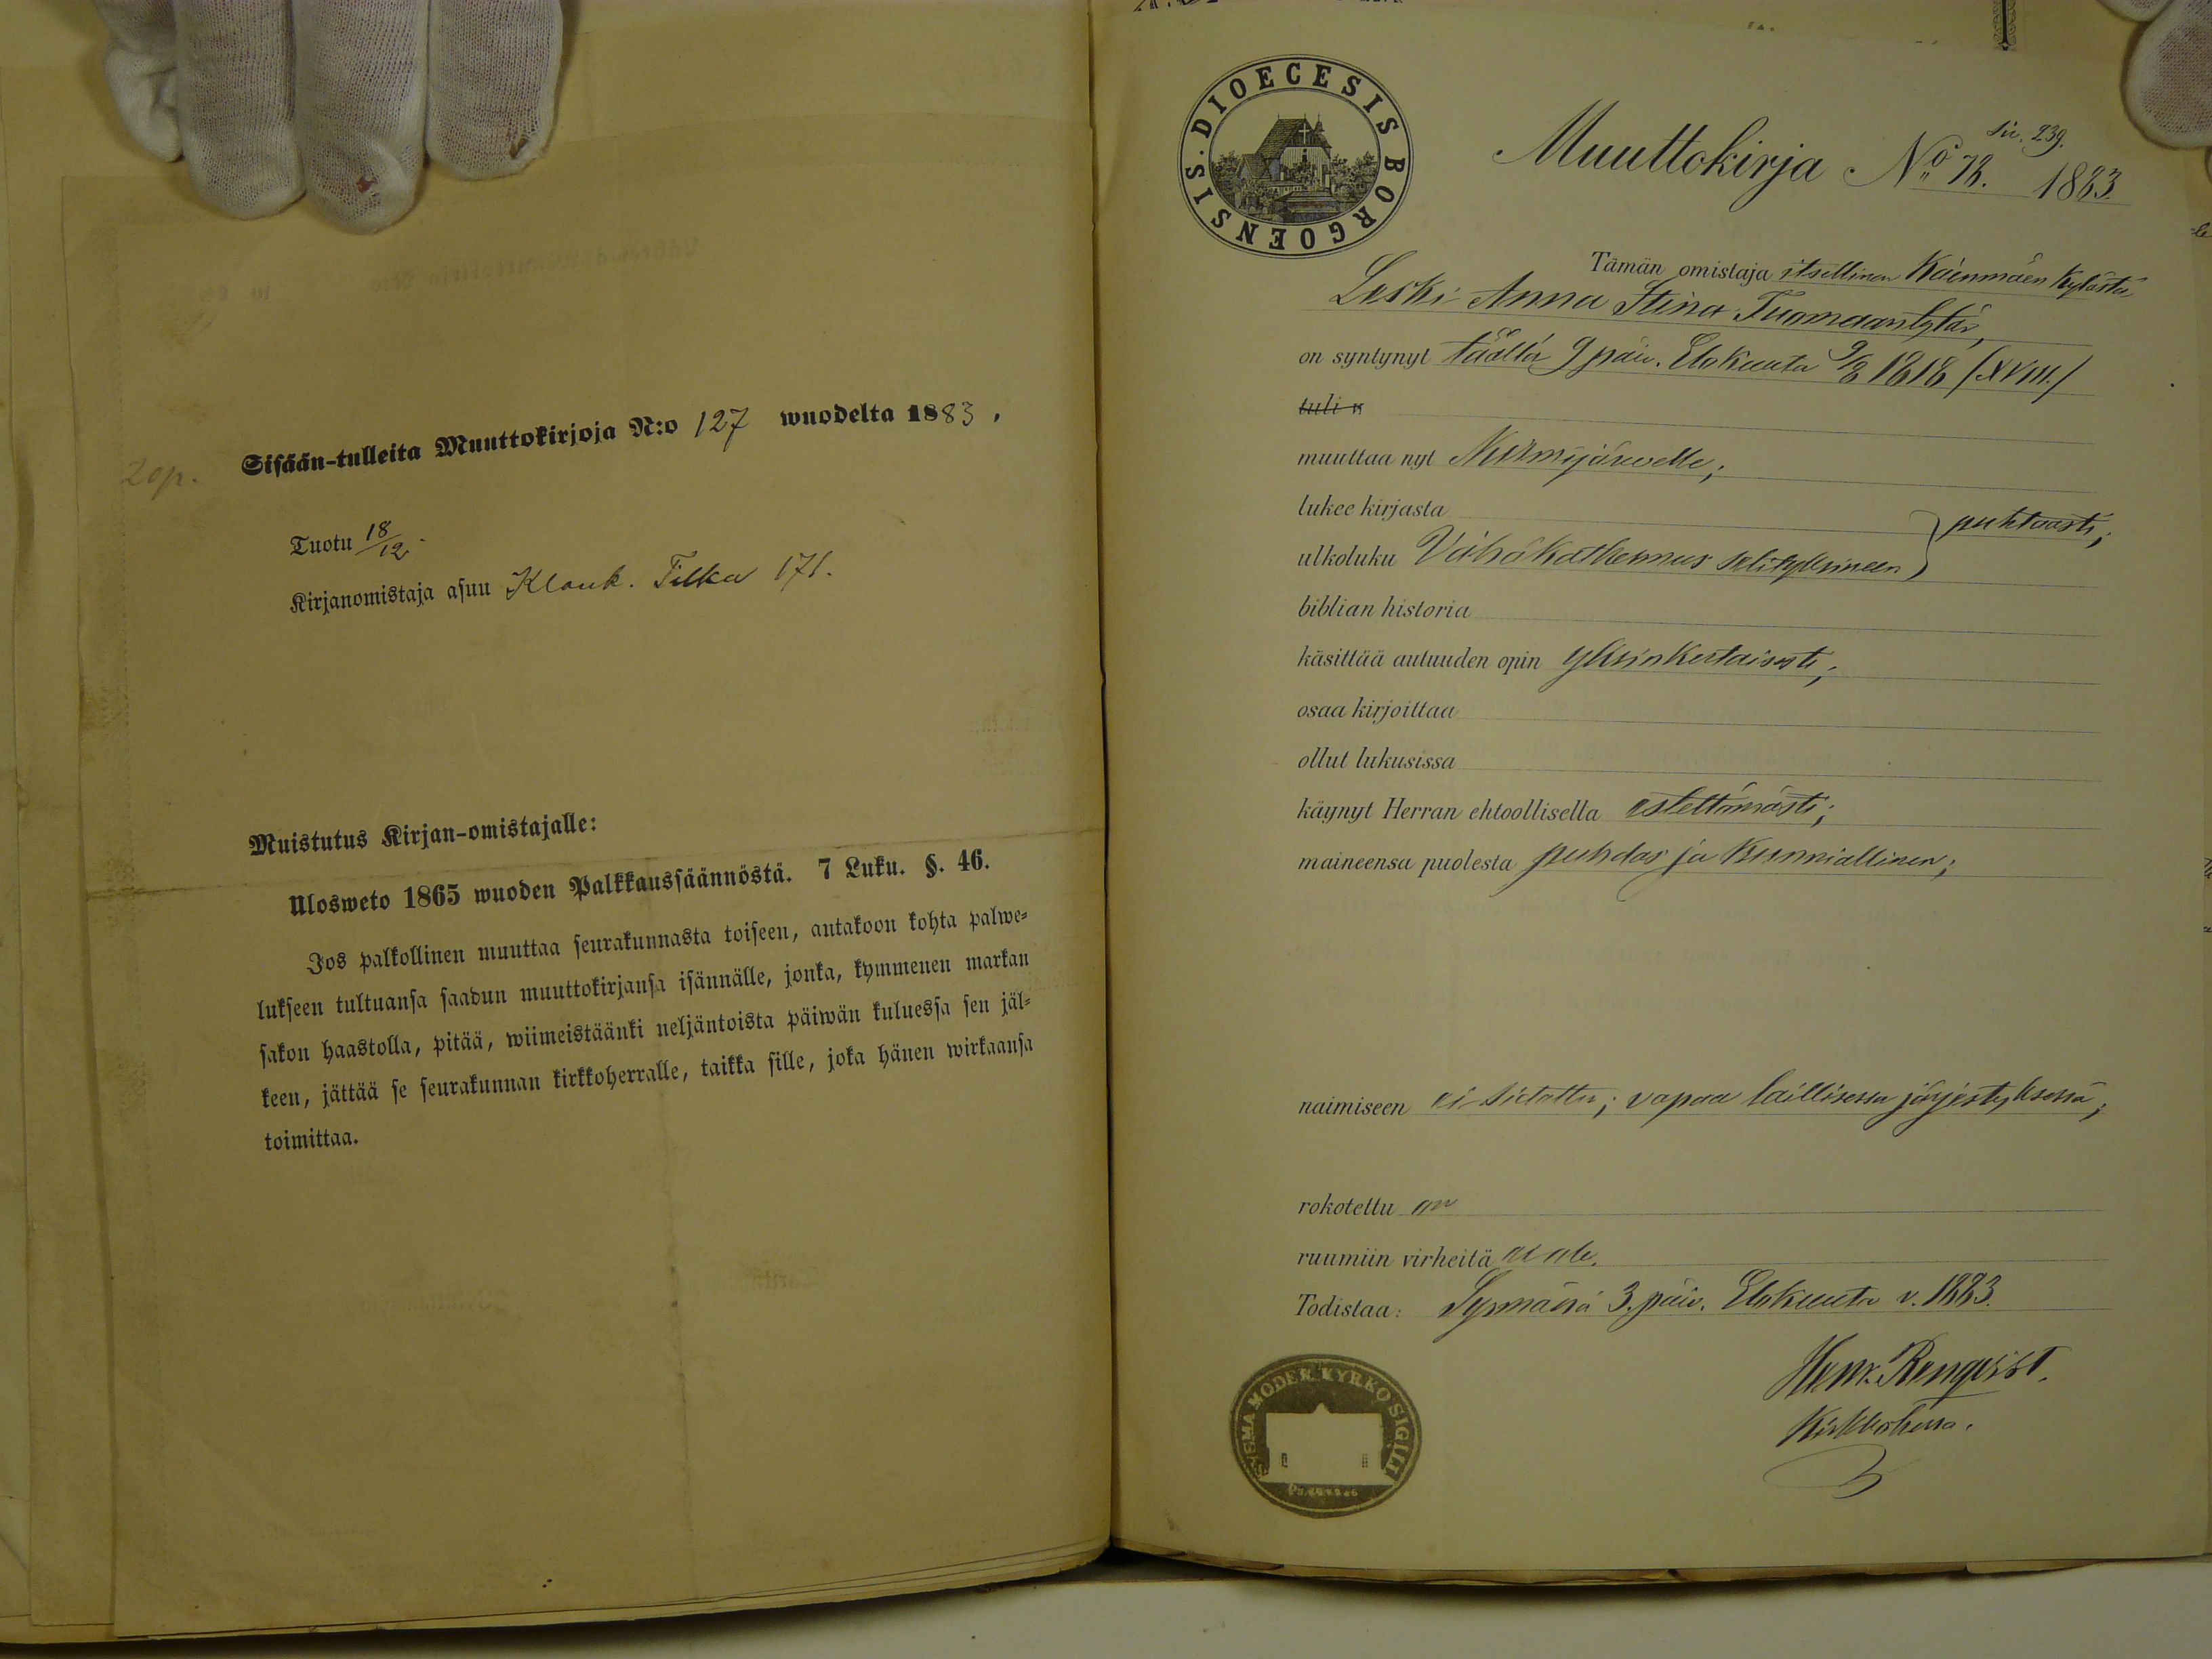 2op.
Sisään-tulleita Muuttokirjoja N:o 127 wuodelta 1883,
Tuotu 18/12.
Kirjanomistaja asuu Klauk. Tilka 171.
Muistutus Kirjan-omistajalle:
Ulosweto 1865 wuoden Palkkaussäännöstä. 7 Luku. §. 46.
Jos palkollinen muuttaa seurakunnasta toiseen, antakoon kohta palwe=
lukseen tultuansa saadun muuttokirjansa isännälle, jonka, kymmenen markan
sakon haastolla, pitää, wiimeistäänki neljäntoista päiwän kuluessa sen jäl=
keen, jättää se seurakunnan kirkkoherralle, taikka sille, joka hänen wirkaansa
toimittaa.
DIOECESIS BORGOENSIS.
siv. 239.
Muuttokirja No 78. 1883.
Tämän omistaja itsellinen Käenmäen kylästä
Leski Anna Stina Tuomaantytär,
on syntynyt täällä 9 päiv. Elokuuta 9/8 1818 /XVIII./
tuli
muuttaa nyt Nurmijärvelle;
lukee kirjasta
puhtaasti;
ulkoluku Vähäkatkesmus selityksineen
biblian historia
käsittää autuuden opin yksinkertaisesti;
osaa kirjoittaa
ollut lukusissa
käynyt Herran ehtoollisella estettömästi;
maineensa puolesta puhdas ja kunniallinen;
naimiseen ei sidottu; vapaa laillisessa järjestyksessä;
rokotettu on
ruumiin virheitä ei ole.
Todistaa: Sysmässä 3. päiv. Elokuuta v. 1883.
Henr. Renqvist.
Kirkkoherra.
SYSMÄ MODER KYRKO SIGILL